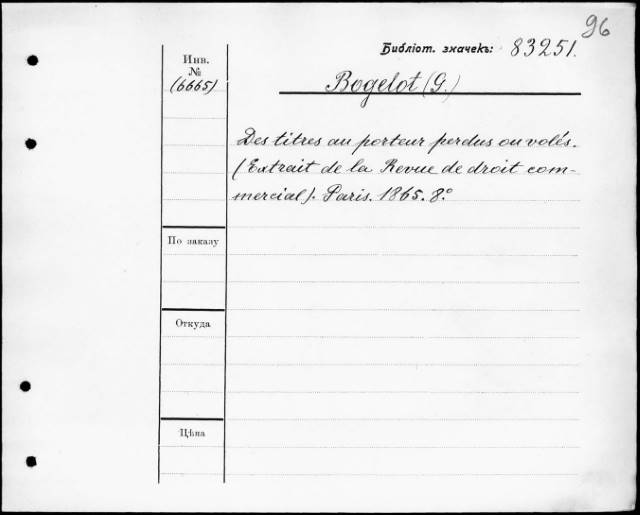 96
Библіот. значекъ: 83251.
Инв.
№
(6665)
Bogelot (G.)
Des titres au porteur perdus ou volés.
(Extrait de la Revue de droit com-
mercial). Paris. 1865. 8.°
По заказу
Откуда
Цѣна